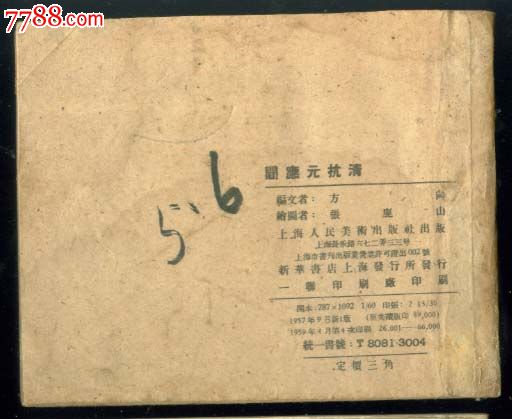 7788.com
5.6
閻應元抗清
編文者: 方 向
繪圖者: 張鹿山
上海人民美術出版社出版
上海長樂路六七二弄三三號
上海市書刊出版業營業許可證出002號
新華書店上海發行所發行
一聯印刷廠印刷
開本:787×1092 1/60 印張:2 15/30
1957年9月新1版
1959年4月第4次印刷 26,001—66,000
統一書號:T8081·3004
定價三角